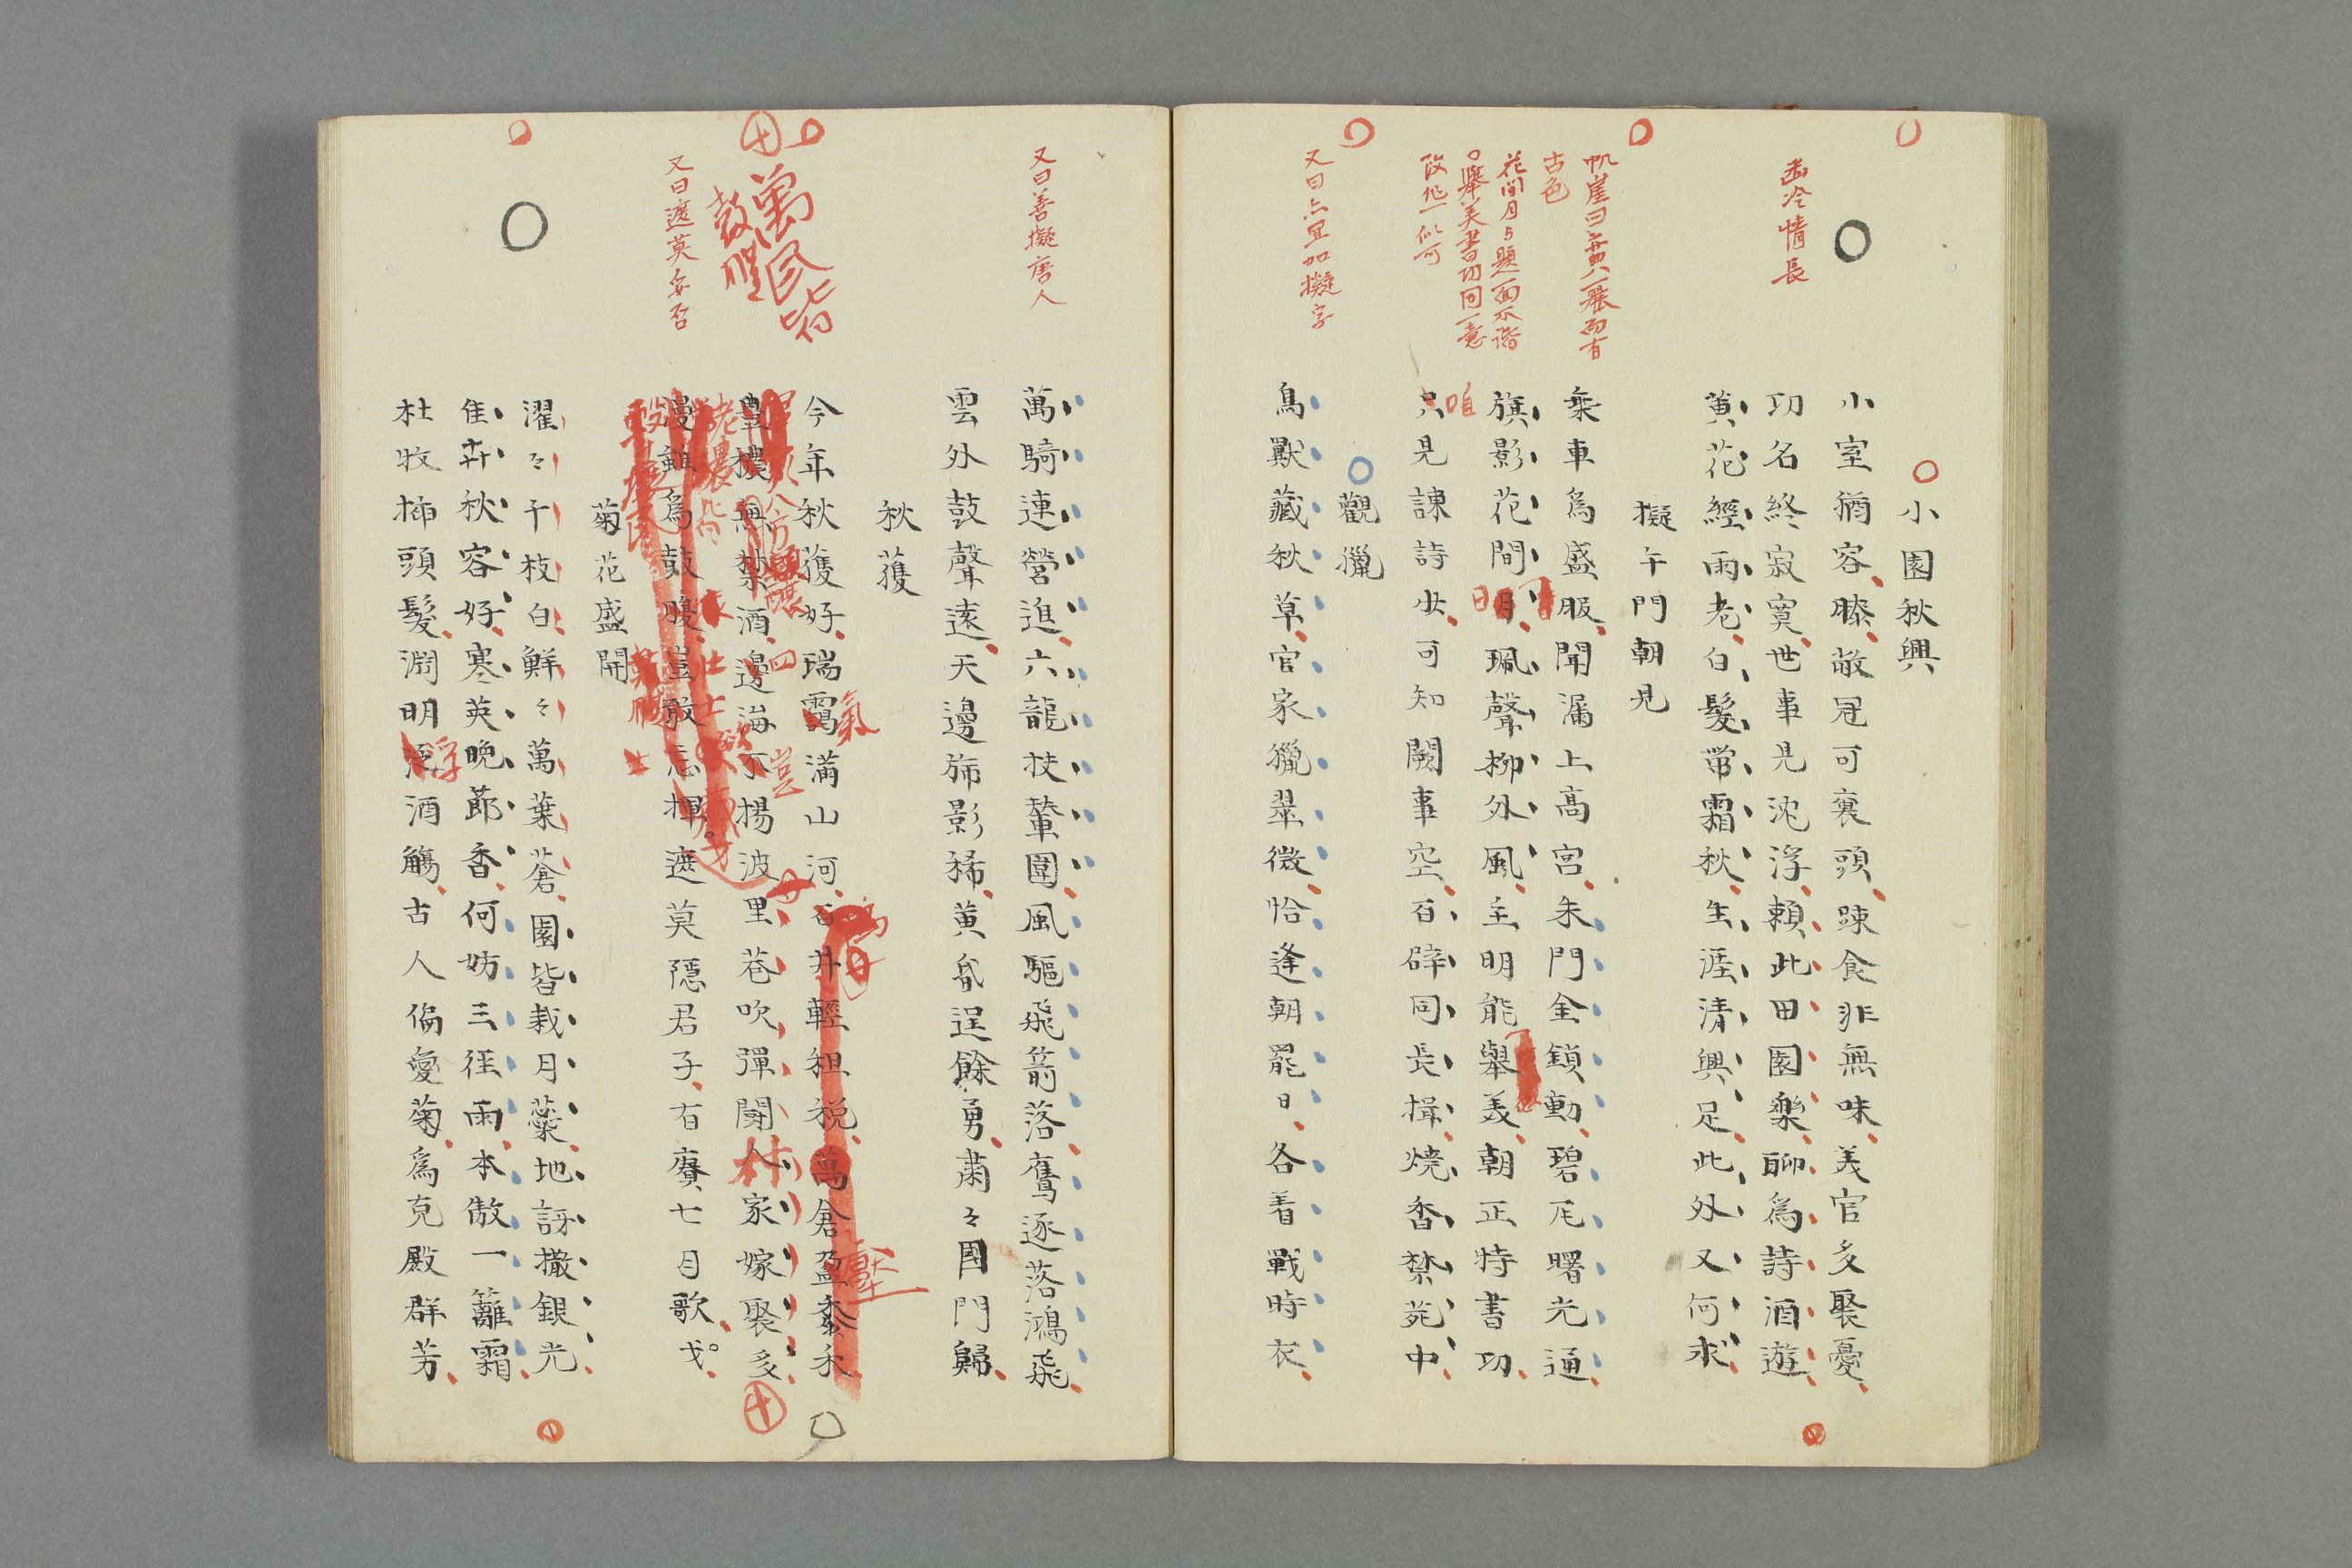 小園秋興
小室猶容膝敝冠可裹頭踈食非無味美官多娶憂
功名終寂寞世事見沈浮頼此田園樂聊爲詩酒遊
黄花經雨老白髮帶霜秋生涯清興足此外又何求
擬午門朝見
乗車爲盛服聞漏上高宮朱門金鎖動碧瓦曙光通
旗影花間月珮聲柳外風主明能舉美朝正特書功
只見諌詩少可知闕事空百辟同長揖焼香禁苑中
觀獵
鳥獸藏秋草官家獵翠微恰逢朝罷日各着戰時衣
萬騎連營進六龍扶輦圍風驅飛箭落鷹逐落鴻飛
雲外鼓聲遠天邊旆影稀黄逞餘勇肅々國門歸
秋獲
今年秋獲好瑞靄滿山河石井輕租税萬倉盈黍禾
豊穰無禁酒邊海不揚波里巷吹彈鬧人家嫁娶多
漫雖爲鼓腹豈敢忘揮遮莫隱君子有賡七月歌
菊花盛開
濯々千枝白鮮々萬葉蒼園皆栽月藥地訝撒銀光
隹卉秋容好寒英晩節香何妨三徑雨本傲一籬霜
杜牧揷頭髮淵明泛酒觴古人偏愛菊爲克殿群芳
冷情長
崖曰典麗而有
古色
花間月与題面不諧
舉美書功同意
改作一似可
又曰上宜加擬字
又曰善擬唐人
萬民皆
鼓腹
又曰遮莫妥否